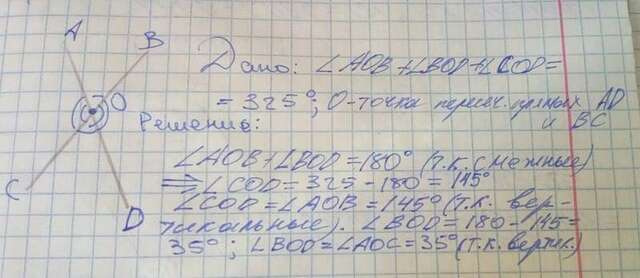 A
B
Дано: ∠AOB+∠BOD+∠COD=
= 325°; O-точка пересеч. прямых AD
и BC
O
Решение:
∠AOB+∠BOD=180° (т.к. смежные)
⇒ ∠COD=325-180=145°
∠COD=∠AOB=145° (т.к. вер-
тикальные). ∠BOD=180-145=
35°; ∠BOD=∠AOC=35° (т.к. вертик.)
C
D